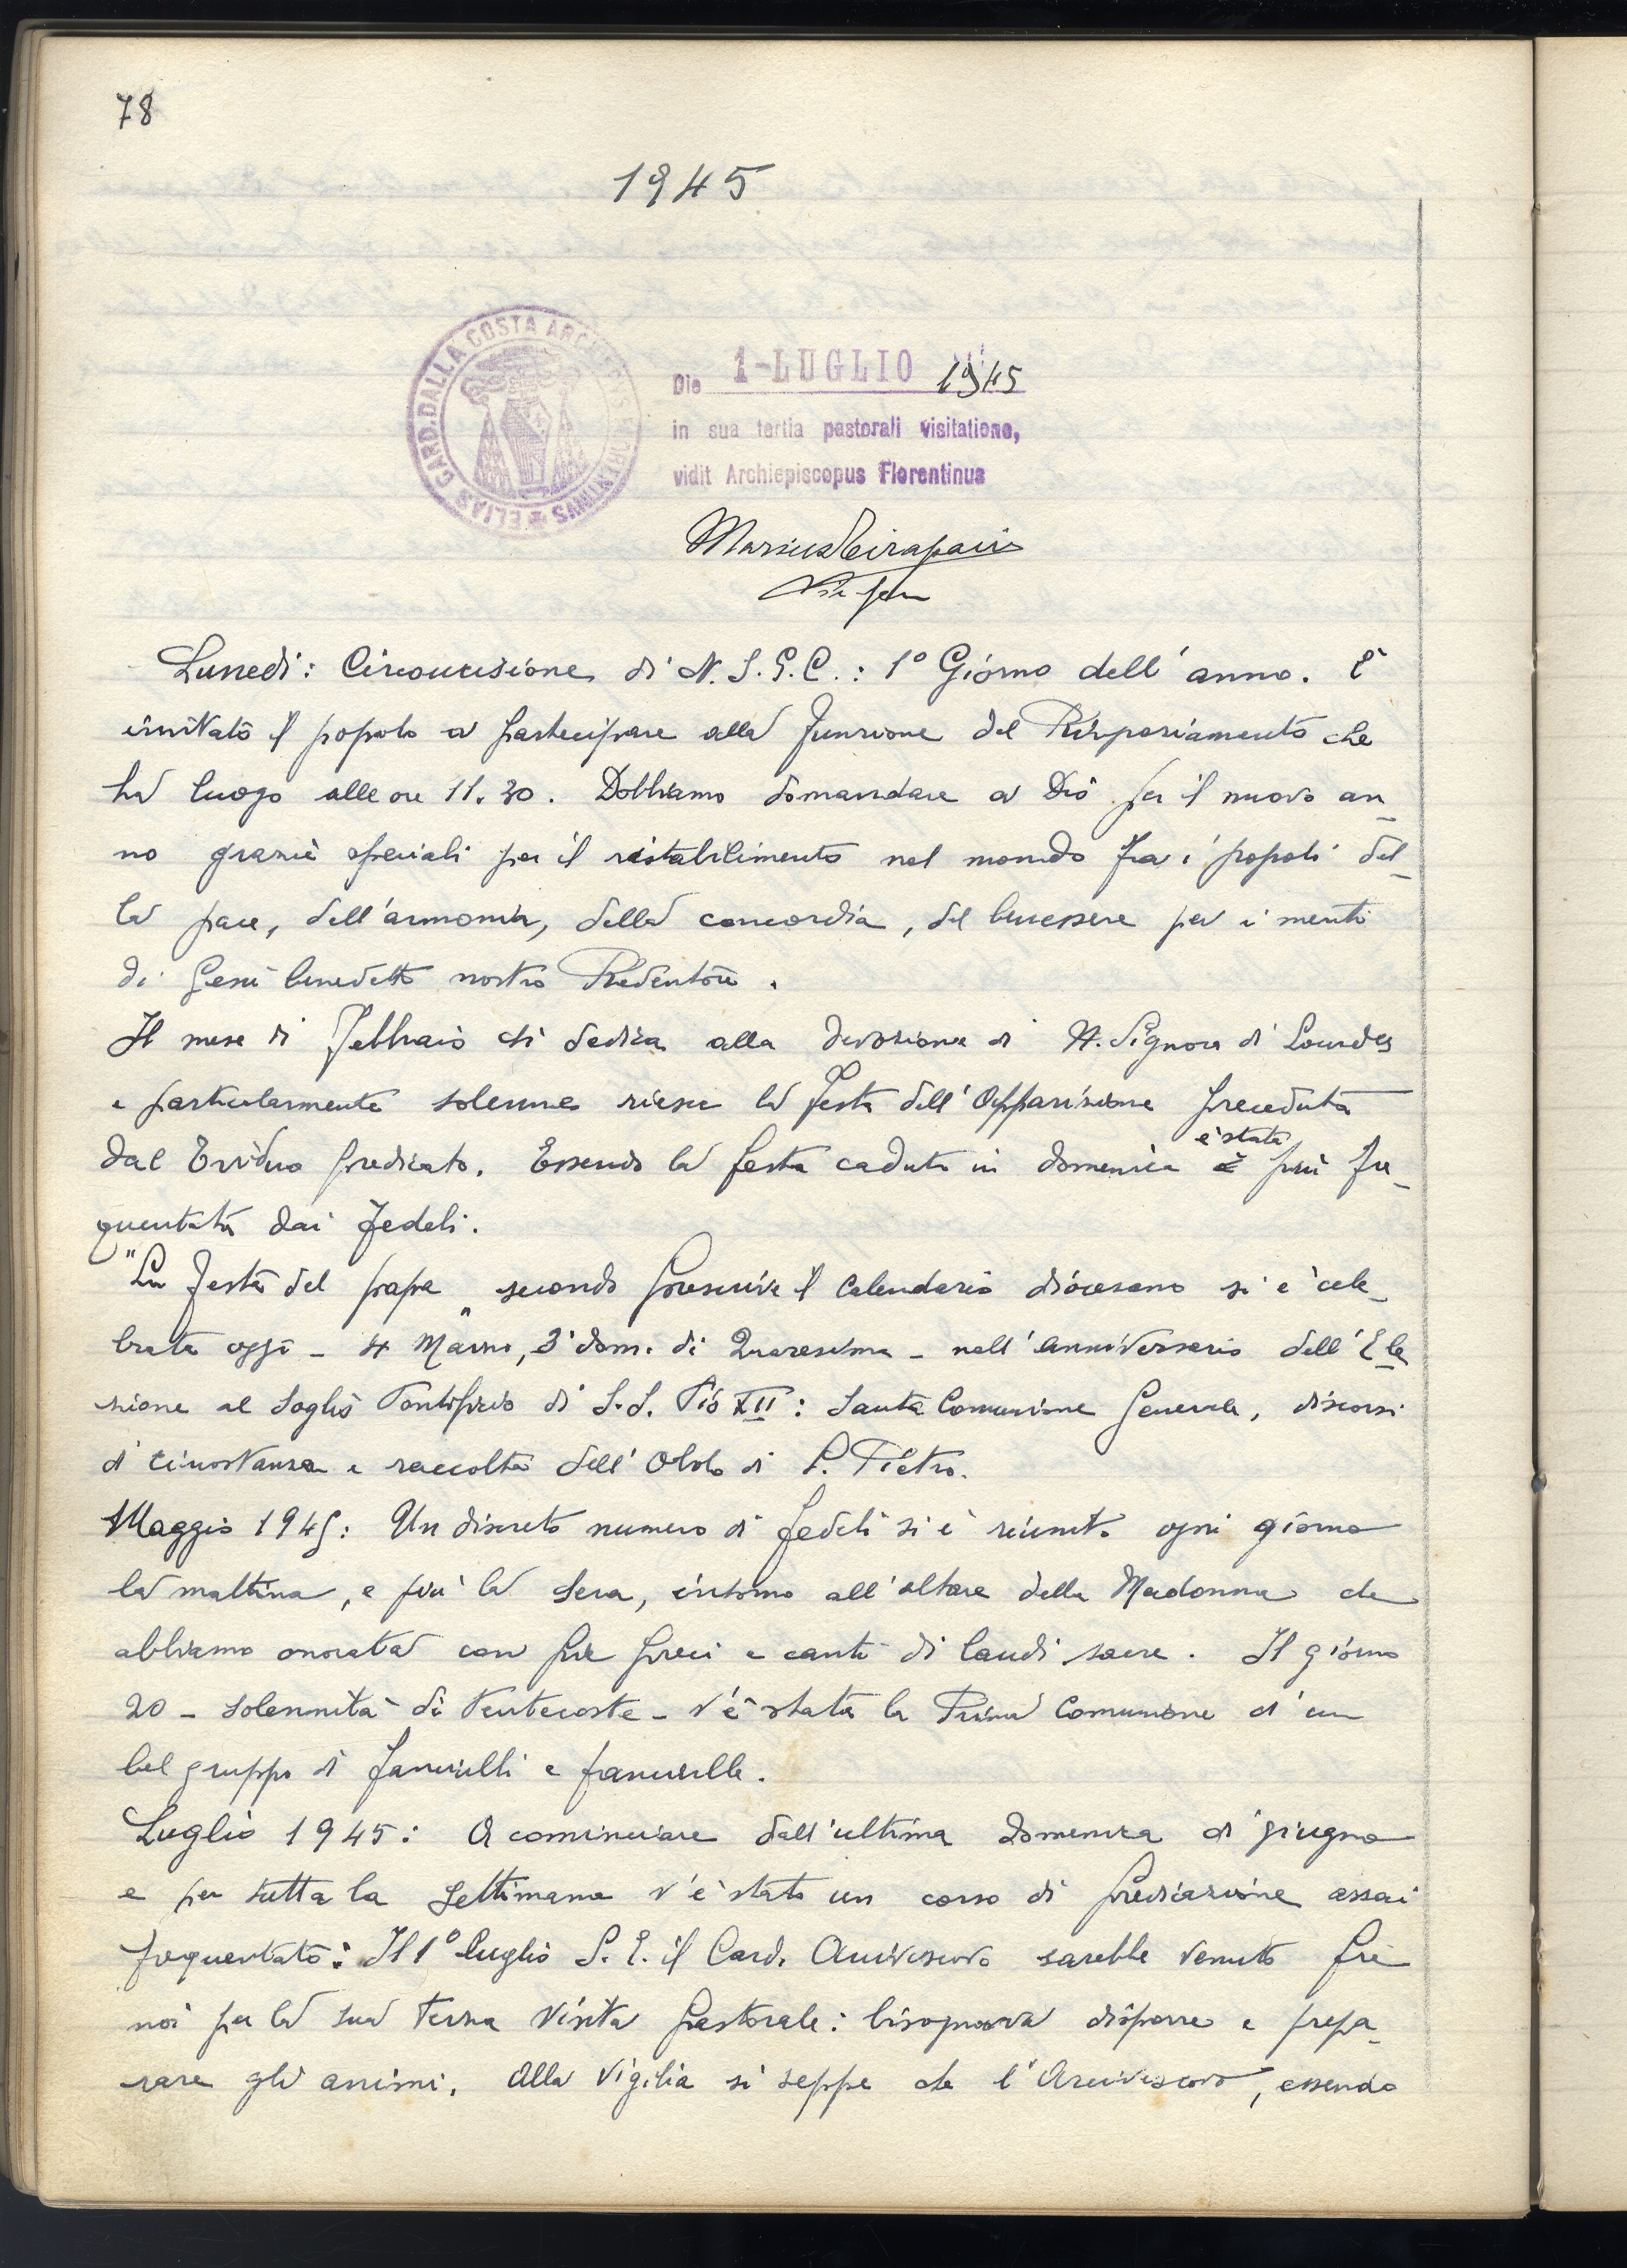 78
1945
ELIAS CARD. DALLA COSTA ARCHIEPISCOPUS FLORENTINUS
Die 1-LUGLIO 1945
in sua tertia pastorali visitatione,
vidit Archiepiscopus Florentinus
Lunedì: Circoncisione di N. S. G. C.: 1º Giorno dell'anno. È
invitato il popolo a partecipare alla funzione del Ringraziamento che
ha luogo alle ore 11.30. Dobbiamo domandare a Dio per il nuovo an_
no grazie speciali per il ristabilimento nel mondo fra i popoli del_
la pace, dell'armonia, della concordia, del benessere per i meriti
di Gesù benedetto nostro Redentore.
Il mese di Febbraio si dedica alla devozione di N. Signora di Lourdes
e particolarmente solenne riesce la festa dell'Apparizione preceduta
dal Triduo predicato. Essendo la festa caduta in domenica è stata più fre_
quentata dai fedeli.
"La festa del papa" secondo prescrive il Calendario diocesano si è cele_
brata oggi - 4 Marzo, 3ª dom. di Quaresima - nell'anniversario dell'Ele
zione al Soglio Pontificio di S.S. Pio XII: Santa Comunione Generale, discorsi
di circostanza e raccolta dell'Obolo di S. Pietro.
Maggio 1945: Un discreto numero di fedeli si è riunito ogni giorno
la mattina, e più la sera, intorno all'altare della Madonna che
abbiamo onorata con pie preci e canti di laudi sacre. Il giorno
20 - solennità di Pentecoste - v'è stata la Prima Comunione d'un
bel gruppo di fanciulli e fanciulle.
Luglio 1945: A cominciare dall'ultima domenica di giugno
e per tutta la settimana v'è stato un corso di predicazione assai
frequentato: Il 1º luglio S. E. il Card. Arcivescovo sarebbe venuto fra
noi per la sua terza Visita Pastorale: bisognava disporre e prepa_
rare gli animi. Alla vigilia si seppe che l'Arcivescovo, essendo